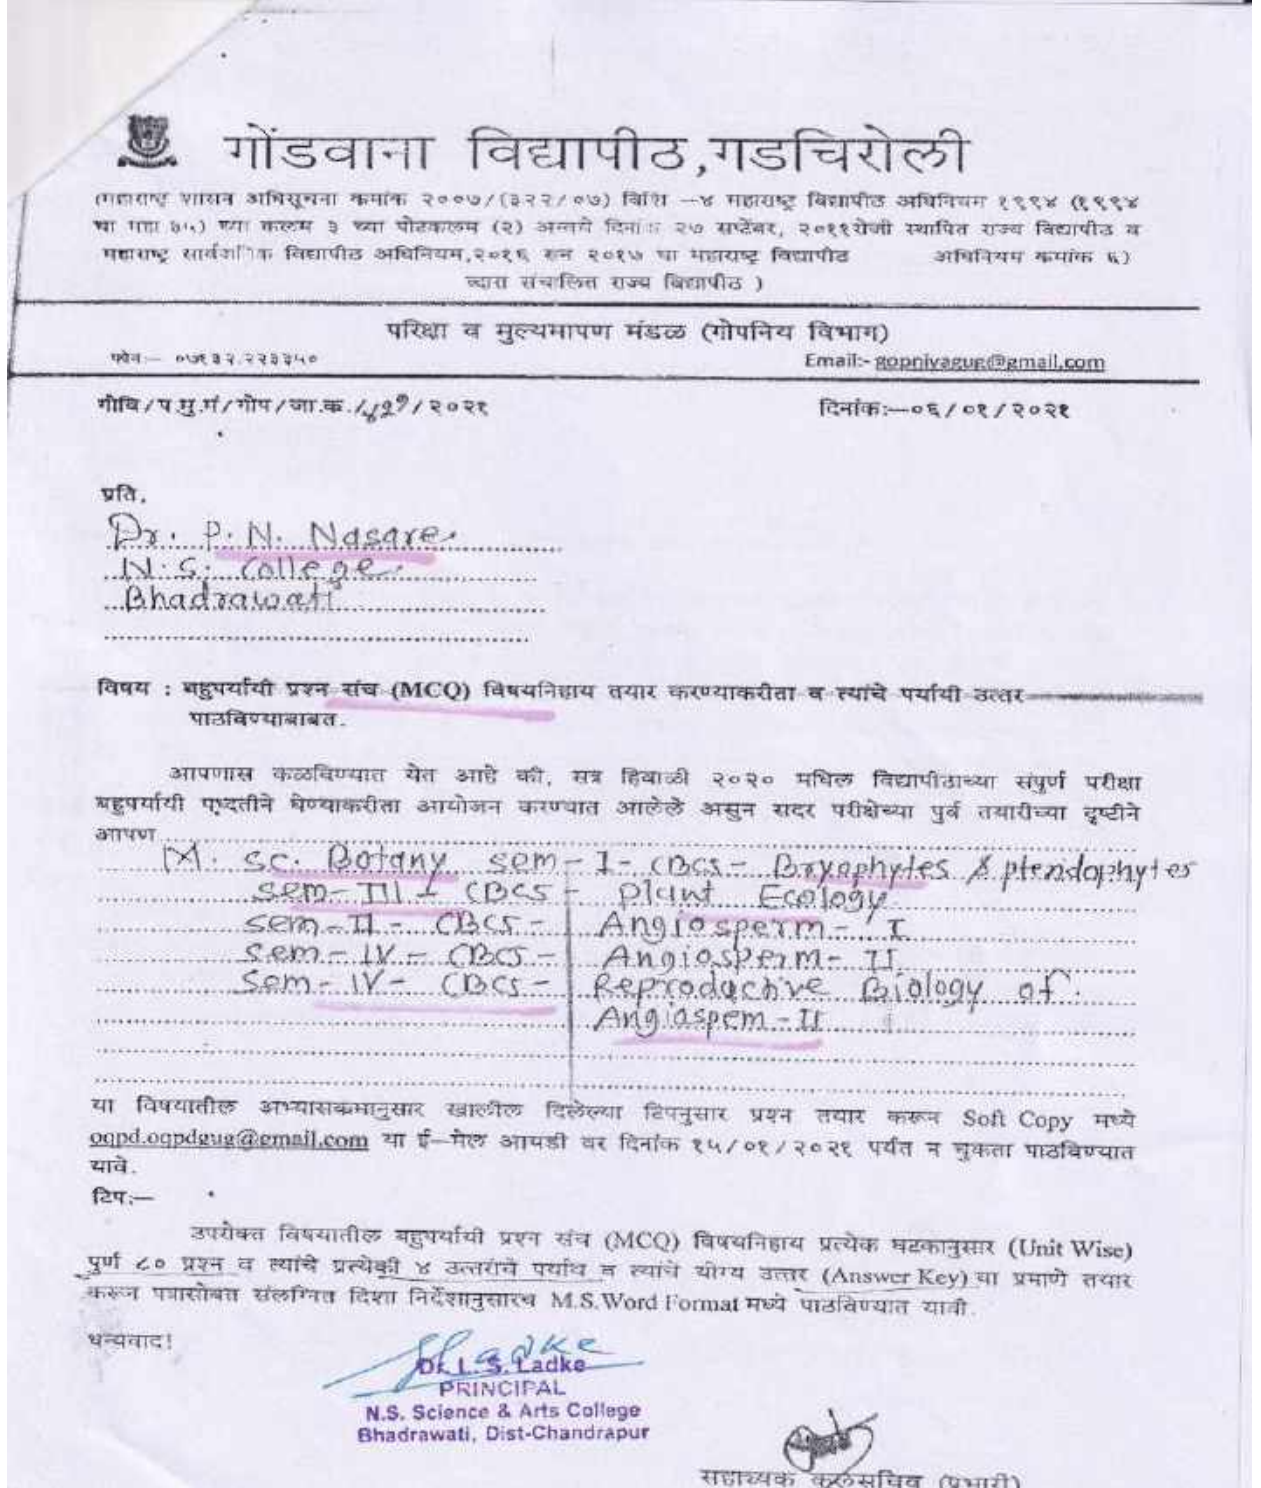 गोंडवाना विद्यापीठ,गडचिरोली
(महाराष्ट्र शासन अधिसूचना कमांक २००७/(३२२/०७) विशि –४ महाराष्ट्र विद्यापीठ अधिनियम १९९४ (१९९४
चा महा ३५) च्या कलम ३ च्या पोटकलम (२) अन्वये दिनांक २७ सप्टेंबर, २०११रोजी स्थापित राज्य विद्यापीठ व
महाराष्ट्र सार्वजनिक विद्यापीठ अधिनियम,२०१६ सन २०१७ चा महाराष्ट्र विद्यापीठ अधिनियम कमांक ६)
व्दारा संचालित राज्य विद्यापीठ )
परिक्षा व मुल्यमापण मंडळ (गोपनिय विभाग)
फोन:— ०७१३२.२२३३५० Email:- gopniyagug@gmail.com
गोवि/प.मु.मं/गोप/जा.क./ /२०२१ दिनांक:—०६/०१/२०२१
प्रति,
Dr. P. N. Nasare
N. S. College
Bhadrawati
विषय : बहुपर्यायी प्रश्न संच (MCQ) विषयनिहाय तयार करण्याकरीता व त्यांचे पर्यायी उत्तर
पाठविण्याबाबत.
आपणास कळविण्यात येत आहे की, सत्र हिवाळी २०२० मधिल विद्यापीठाच्या संपुर्ण परीक्षा
बहुपर्यायी पध्दतीने घेण्याकरीता आयोजन करण्यात आलेले असुन सदर परीक्षेच्या पुर्व तयारीच्या दृष्टीने
आपण
M. sc. Botany sem - I - CBCS - Bryophytes & ptendophytes
sem - III - CBCS - plant Ecology
sem - II - CBCS - Angiosperm - I
sem - IV - CBCS - Angiosperm - II
sem - IV - CBCS - Reproductive Biology of
Angiaspem - II
या विषयातील अभ्यासकमानुसार खालील दिलेल्या टिपनुसार प्रश्न तयार करून Soft Copy मध्ये
oqpd.oqpdgug@gmail.com या ई–मेल आयडी वर दिनांक १५/०१/२०२१ पर्यंत न चुकता पाठविण्यात
यावे.
टिप:—
उपरोक्त विषयातील बहुपर्यायी प्रश्न संच (MCQ) विषयनिहाय प्रत्येक घटकानुसार (Unit Wise)
पुर्ण ८० प्रश्न व त्यांचे प्रत्येकी ४ उत्तरांचे पर्याय व त्यांचे योग्य उत्तर (Answer Key) या प्रमाणे तयार
करून पत्रासोबत संलग्नित दिशा निर्देशानुसारच M.S.Word Format मध्ये पाठविण्यात यावी.
धन्यवाद!
Dr. L. S. Ladke
PRINCIPAL
N.S. Science & Arts College
Bhadrawati, Dist-Chandrapur
सहाय्यक कुलसचिव (प्रभारी)